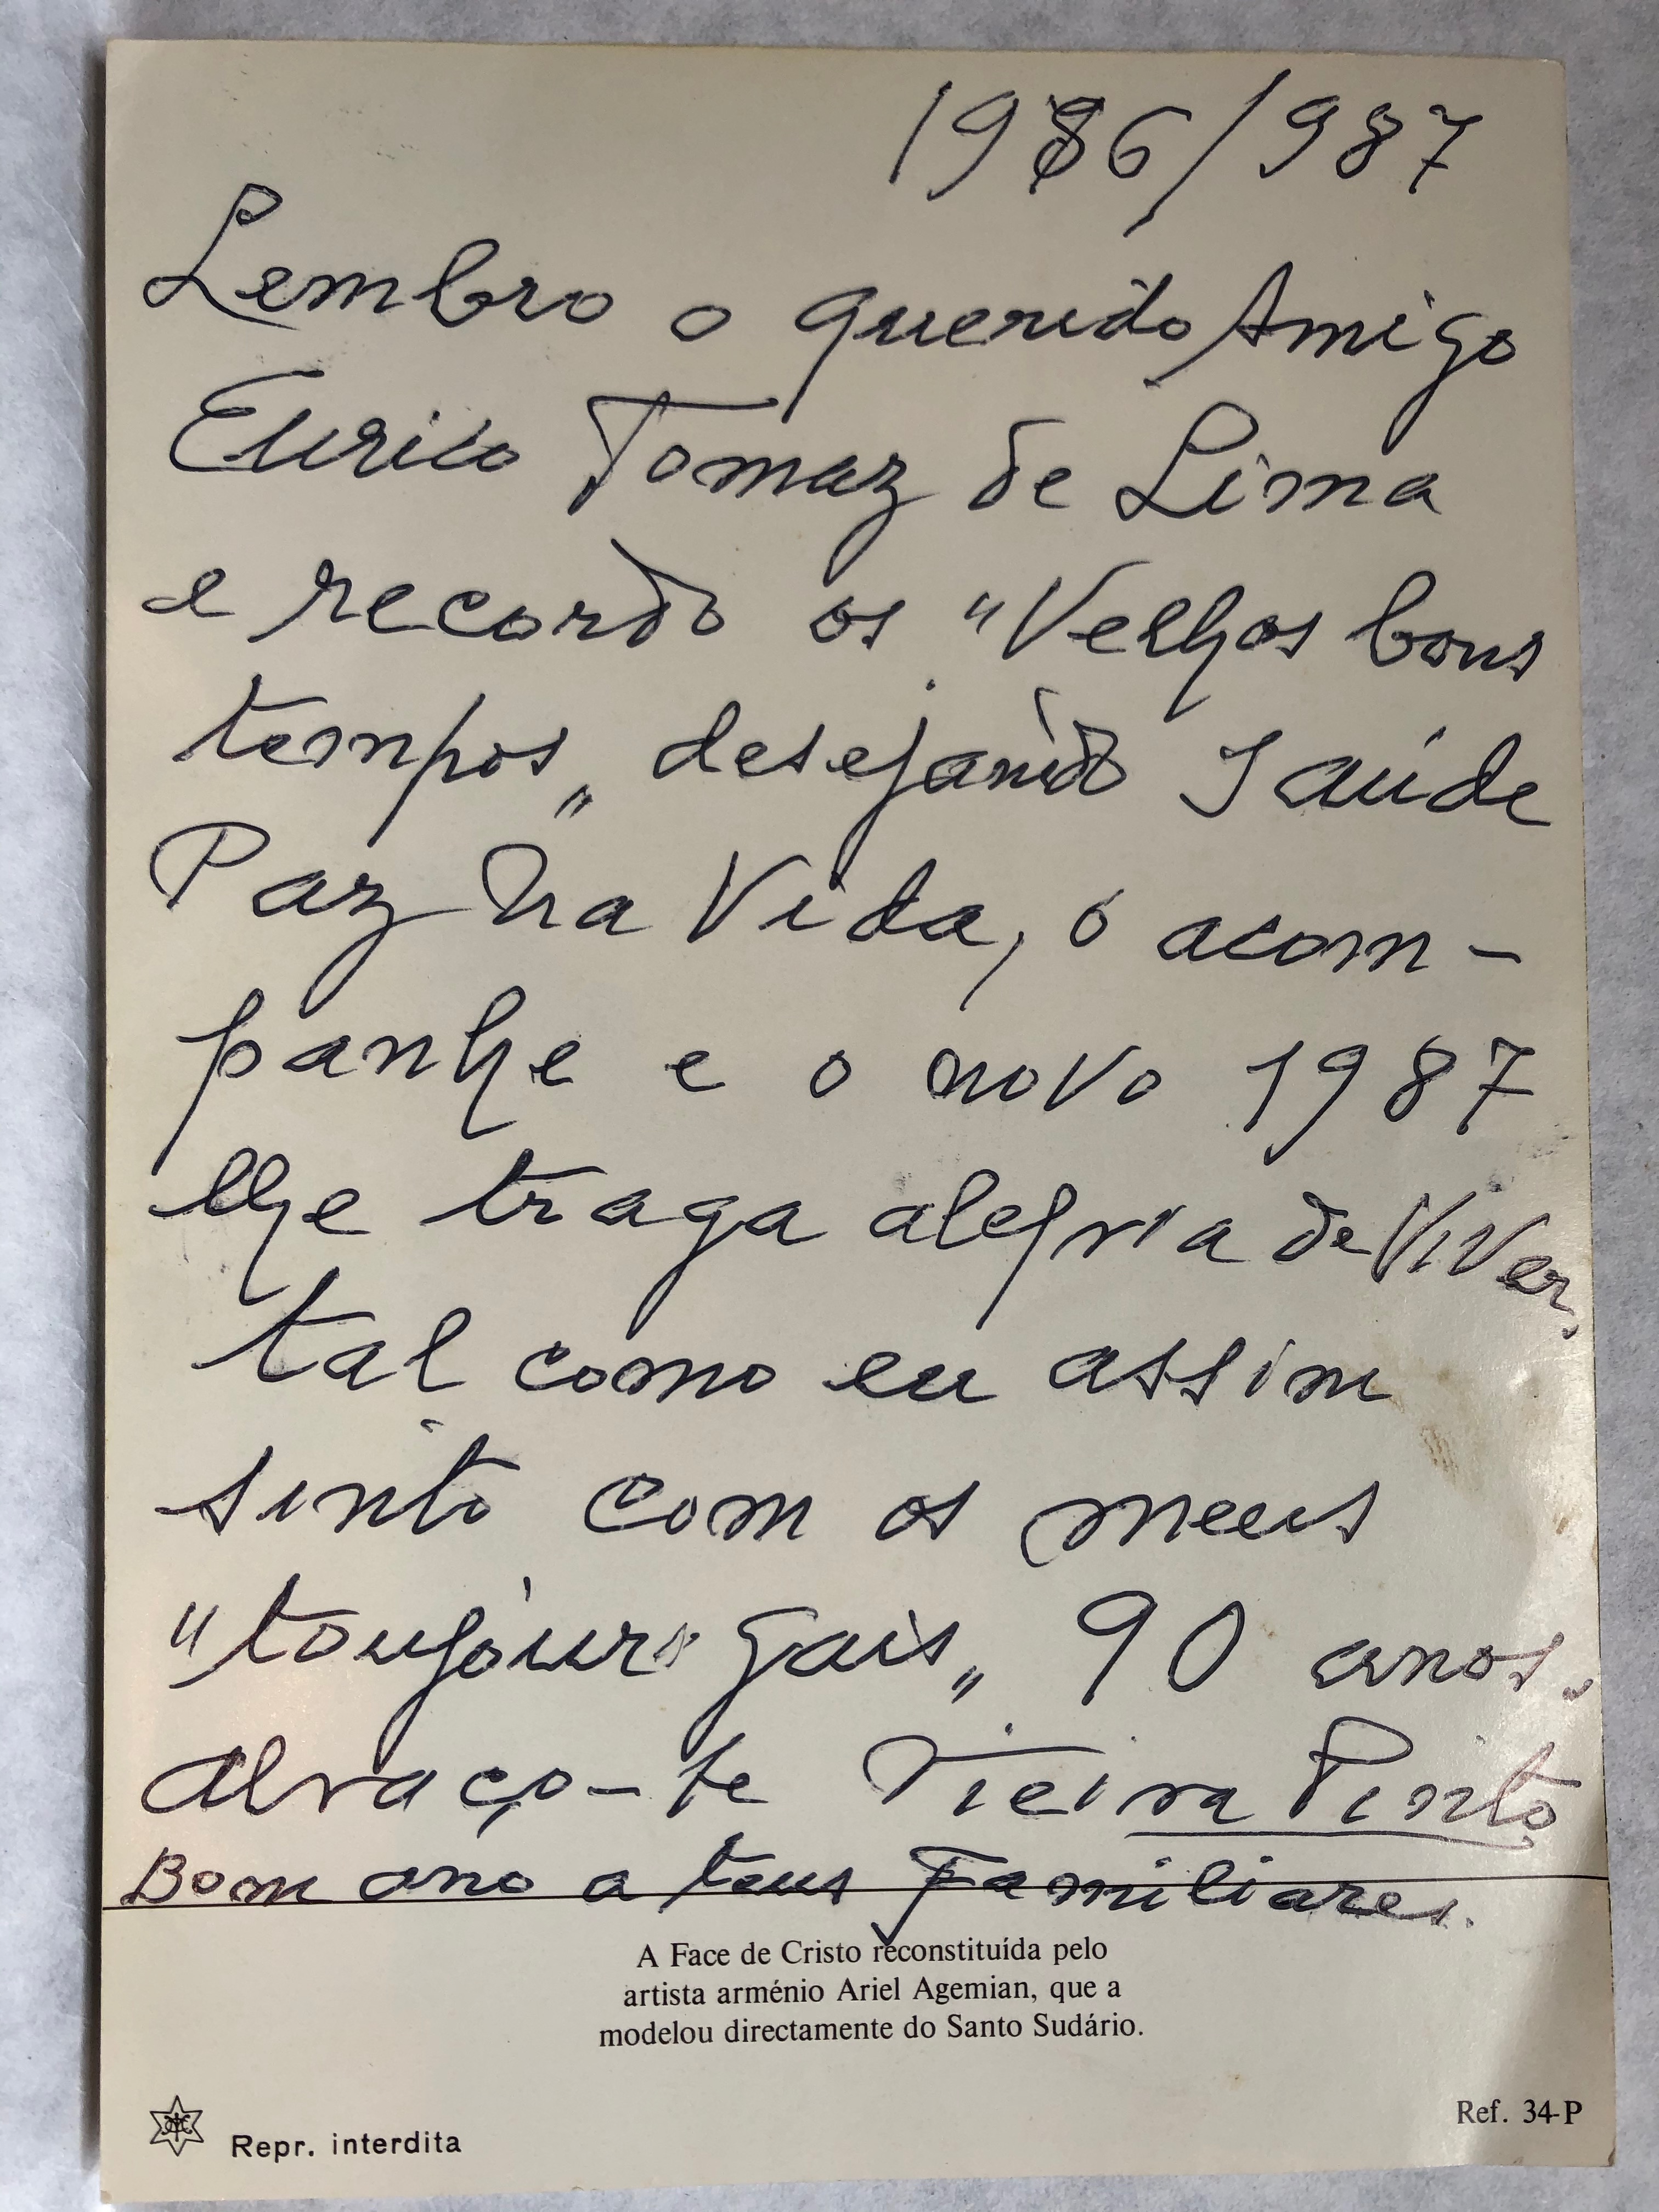 1986/987
Lembro o querido Amigo
Eurico Tomaz de Lima
e recordo os "Velhos bons
tempos„ desejando Saúde
Paz na Vida, o acom-
panhe e o novo 1987
lhe traga alegria de Viver,
tal como eu assim
sinto com os meus
"toujours gais„ 90 anos.
Abraço-te Vieira Pinto
Bom ano a teus Familiares.
A Face de Cristo reconstituída pelo
artista arménio Ariel Agemian, que a
modelou directamente do Santo Sudário.
Repr. interdita
Ref. 34-P